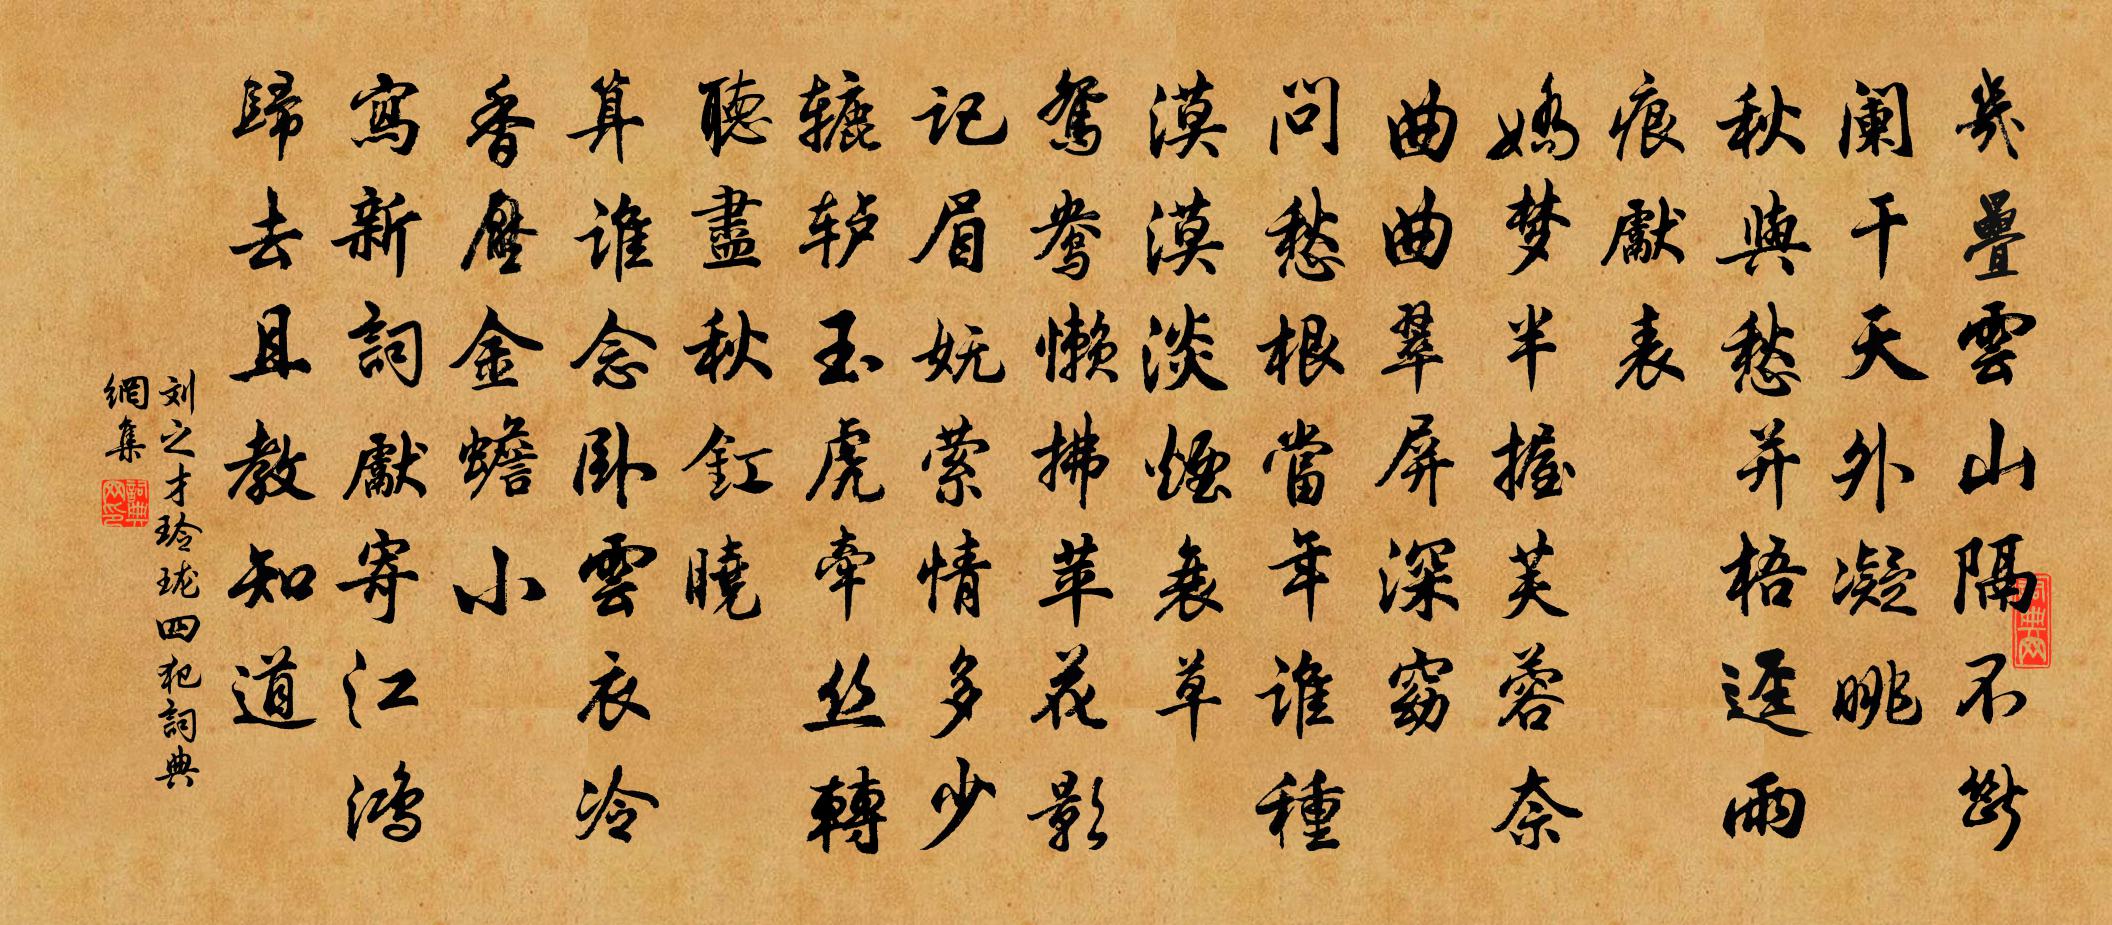 幾疊雲山隔不斷
阑干天外凝眺
秋與愁并梧遲雨
痕獻表
嬌梦半握芙蓉奈
曲曲翠屏深窈
問愁根當年誰種
漠漠淡煙衰草
鸳鸯懒拂苹花影
记眉妩萦情多少
辘轳玉虎牵丝轉
聽盡秋釭曉
算誰念卧雲衣冷
香壓金蟾小
寫新詞獻寄江鸿
歸去且教知道
刘之才玲珑四犯詞典
網集